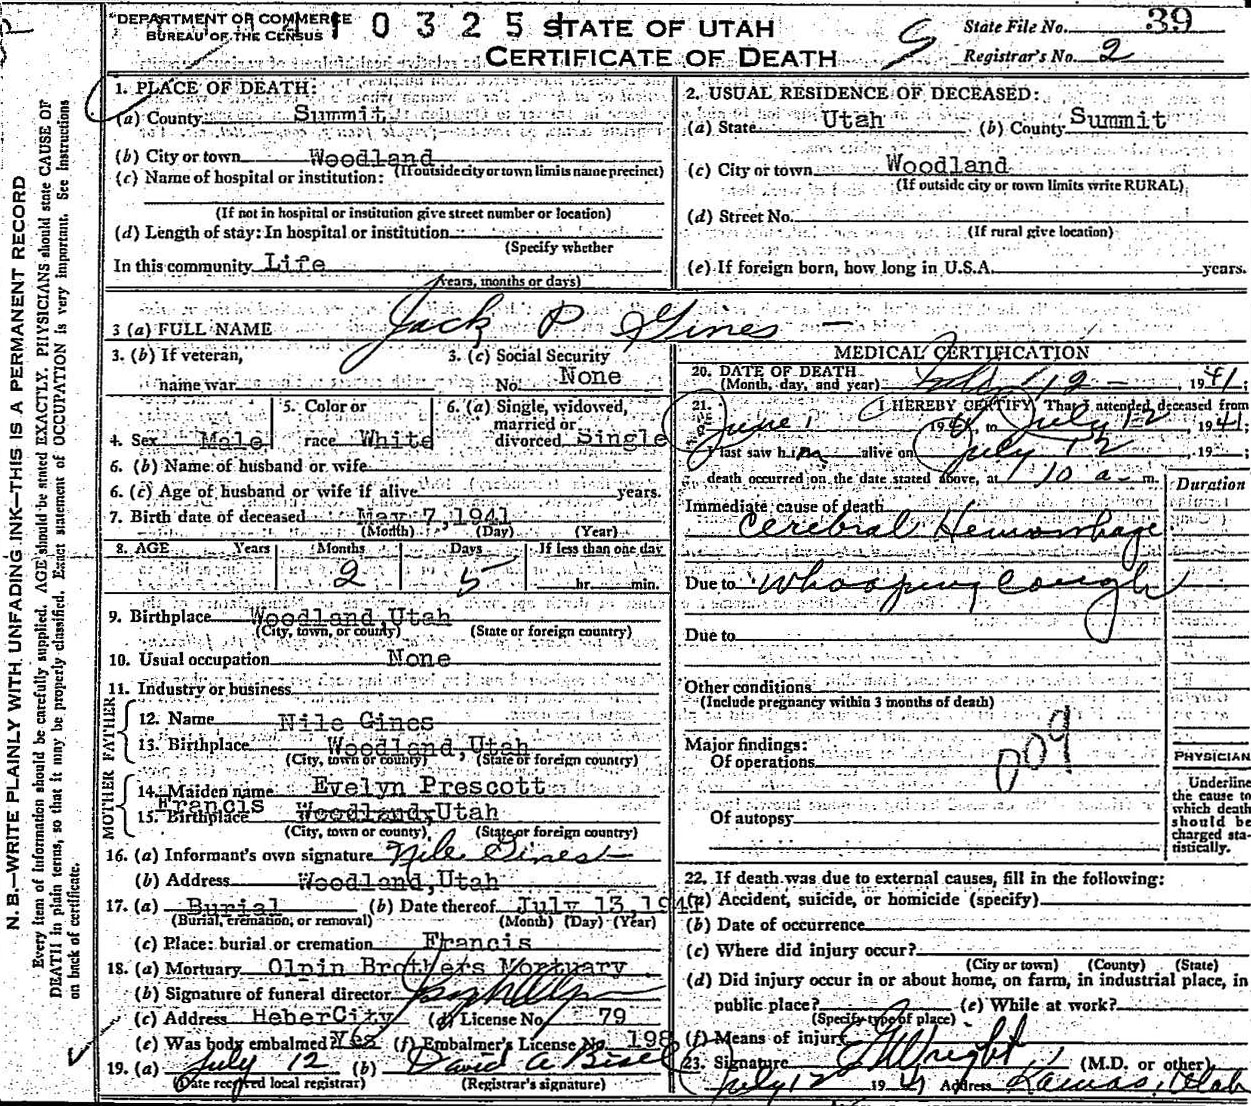 DEPARTMENT OF COMMERCE
BUREAU OF THE CENSUS
41 0 3 2 5 1
STATE OF UTAH
CERTIFICATE OF DEATH
State File No. 39
Registrar's No. 2
N. B.—WRITE PLAINLY WITH UNFADING INK—THIS IS A PERMANENT RECORD
Every item of information should be carefully supplied. AGE should be stated EXACTLY. PHYSICIANS should state CAUSE OF
DEATH in plain terms, so that it may be properly classified. Exact statement of OCCUPATION is very important. See Instructions
on back of certificate.
1. PLACE OF DEATH:
(a) County Summit
(b) City or town Woodland
(If outside city or town limits name precinct)
(c) Name of hospital or institution:
(If not in hospital or institution give street number or location)
(d) Length of stay: In hospital or institution
(Specify whether
In this community Life
years, months or days)
2. USUAL RESIDENCE OF DECEASED:
(a) State Utah (b) County Summit
(c) City or town Woodland
(If outside city or town limits write RURAL)
(d) Street No.
(If rural give location)
(e) If foreign born, how long in U.S.A. years.
3 (a) FULL NAME Jack P Gines
3. (b) If veteran,
name war
3. (c) Social Security
No. None
4. Sex Male
5. Color or
race White
6. (a) Single, widowed,
married or
divorced Single
6. (b) Name of husband or wife
6. (c) Age of husband or wife if alive years.
7. Birth date of deceased May 7, 1941
(Month) (Day) (Year)
8. AGE Years Months Days If less than one day
2 5 hr. min.
9. Birthplace Woodland, Utah
(City, town, or county) (State or foreign country)
10. Usual occupation None
11. Industry or business
FATHER
12. Name Nile Gines
13. Birthplace Woodland, Utah
(City, town or county) (State or foreign country)
MOTHER
14. Maiden name Evelyn Prescott
15. Birthplace Francis Woodland, Utah
(City, town or county) (State or foreign country)
16. (a) Informant's own signature Nile Gines
(b) Address Woodland, Utah
17. (a) Burial (b) Date thereof July 13, 1941
(Burial, cremation, or removal) (Month) (Day) (Year)
(c) Place: burial or cremation Francis
18. (a) Mortuary Olpin Brothers Mortuary
(b) Signature of funeral director
(c) Address Heber City (d) License No. 79
(e) Was body embalmed? Yes (f) Embalmer's License No. 198
19. (a) July 12 (b) David A Bisel
(Date received local registrar) (Registrar's signature)
MEDICAL CERTIFICATION
20. DATE OF DEATH
(Month, day, and year) July 12 - 1941;
21. I HEREBY CERTIFY That I attended deceased from
June 1 1941 to July 12, 1941;
I last saw him alive on July 12, 19 ;
death occurred on the date stated above, at 10 a- m.
Duration
Immediate cause of death
Cerebral Hemorrhage
Due to Whooping Cough
Due to
Other conditions
(Include pregnancy within 3 months of death)
Major findings:
Of operations
009
Of autopsy
PHYSICIAN
Underline
the cause to
which death
should be
charged sta-
tistically.
22. If death was due to external causes, fill in the following:
(a) Accident, suicide, or homicide (specify)
(b) Date of occurrence
(c) Where did injury occur?
(City or town) (County) (State)
(d) Did injury occur in or about home, on farm, in industrial place, in
public place? (e) While at work?
(Specify type of place)
(f) Means of injury
23. Signature Wright (M.D. or other)
July 12 1941 Address Kamas, Utah